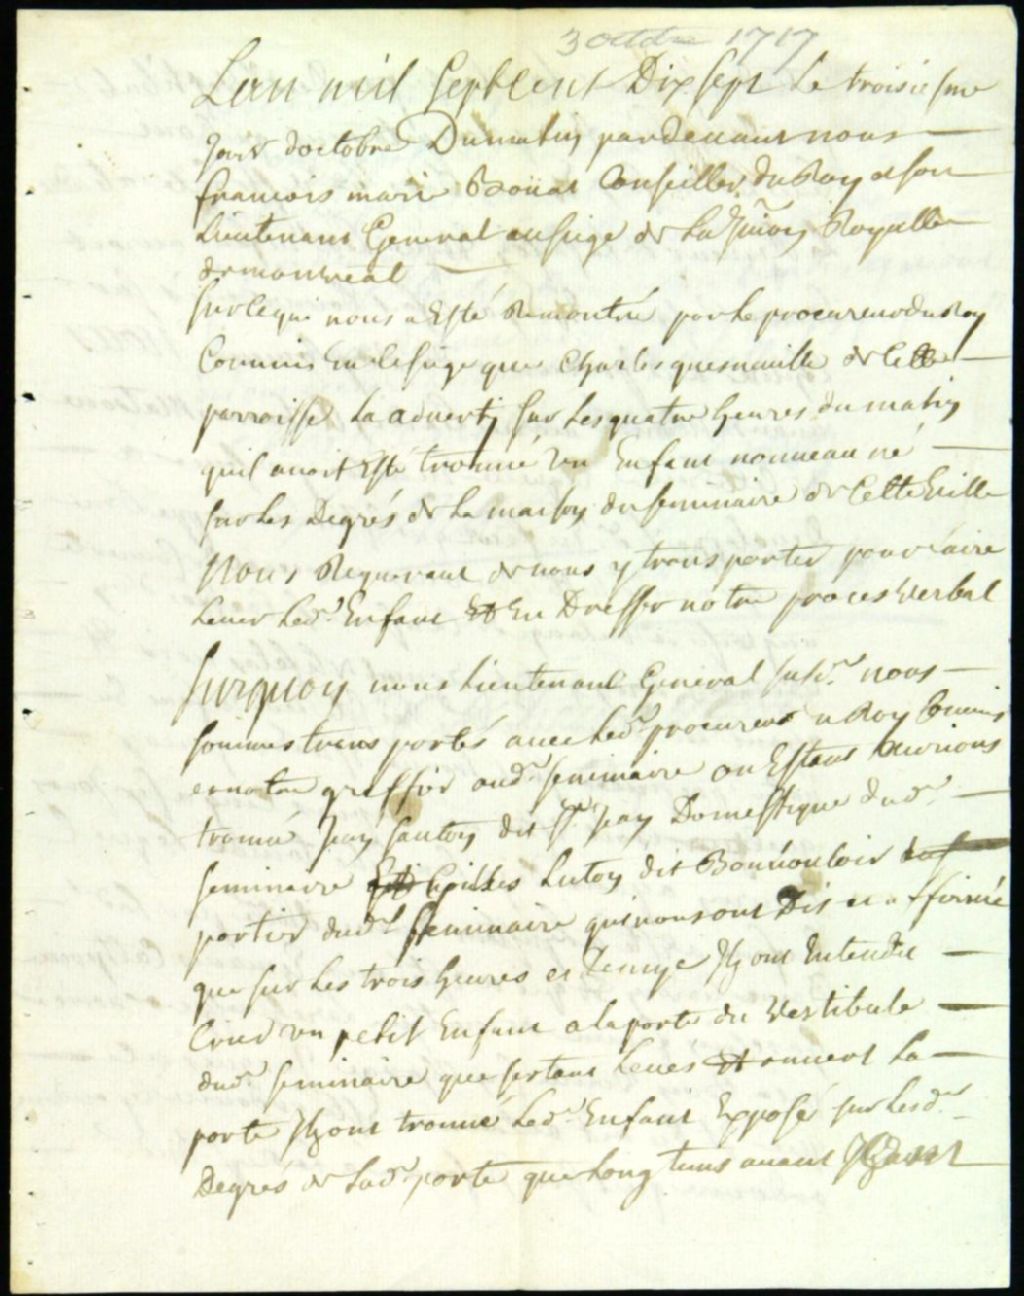 3 octobre 1717
Lan mil Sept Cent Dix sept Le troisiesme
Jour d'octobre Du matin par devant nous
francois marie Boüat Conseiller du Roy et son
Lieutenant General au siege de La Juron Royalle
de montreal
Sur ce que nous a Esté Remontré par le procureur du Roy
Commis En Ce siege que Charles quesneuille de Cette
parroisse La adverty sur Les quatre heures du matin
quil avoit Esté trouvé un Enfant nouveau né
sur Les Degrés de La maison du seminaire de Cette ville
Nous Requerant de nous y transporter pour faire
Lever Led. Enfant Et En Dresser notre proces verbal
Surquoy nous Lieutenant General susd. nous
sommes transportés avec Led. procureur du Roy Commis
et notre greffier aud. seminaire ou Estans Aurions
trouvé Jean santon dit St. Jean Domestique dud.
seminaire Et Gilles Luton dit Bonvouloir
portier dud. seminaire qui nous ont Dit et affirmé
que sur Les trois heures et Demye Ils ont Entendu
Crier un petit Enfant a la porte du Vestibule
dud. seminaire que sestant Levés Et ouvert La
porte Ils ont trouvé Led. Enfant Exposé sur Lesd.
Degrés de Lad. porte que Long tems avant